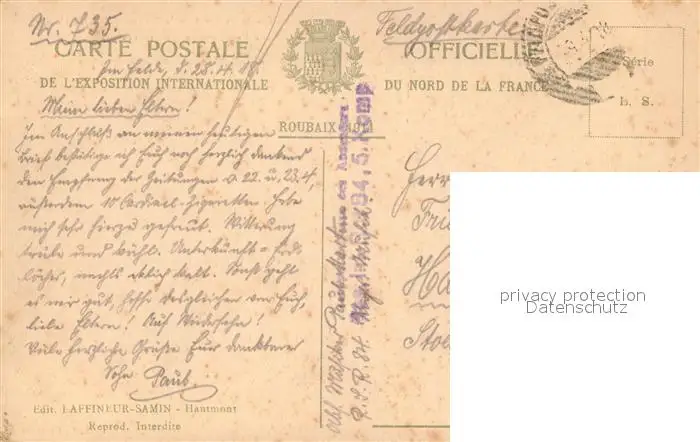 Nr. 735.
Feldpostkarte
CARTE POSTALE
OFFICIELLE
Im Felde, d. 28.4.18.
DE L'EXPOSITION INTERNATIONALE
DU NORD DE LA FRANCE
ROUBAIX 1911
Série
L. S.
Meine lieben Eltern!
Im Anschluß an meinen heutigen
Brief bestätige ich Euch noch herzlich dankend
den Empfang der Zeitungen v. 22. u. 23.4,
außerdem 10 Cardinal-Zigaretten. Habe
mich sehr hierzu gefreut. Witterung
trübe und kühl. Unterkunft = Erd-
löcher, nachts kalt. Sonst geht
es mir gut, hoffe desgleichen von Euch,
liebe Eltern! Auf Wiedersehn!
Viele herzliche Grüße Euer dankbarer
Sohn Paul.
Edit. LAFFINEUR-SAMIN - Hautmont
Reprod. Interdite
5. Komp
Herr
Ha
privacy protection
Datenschutz